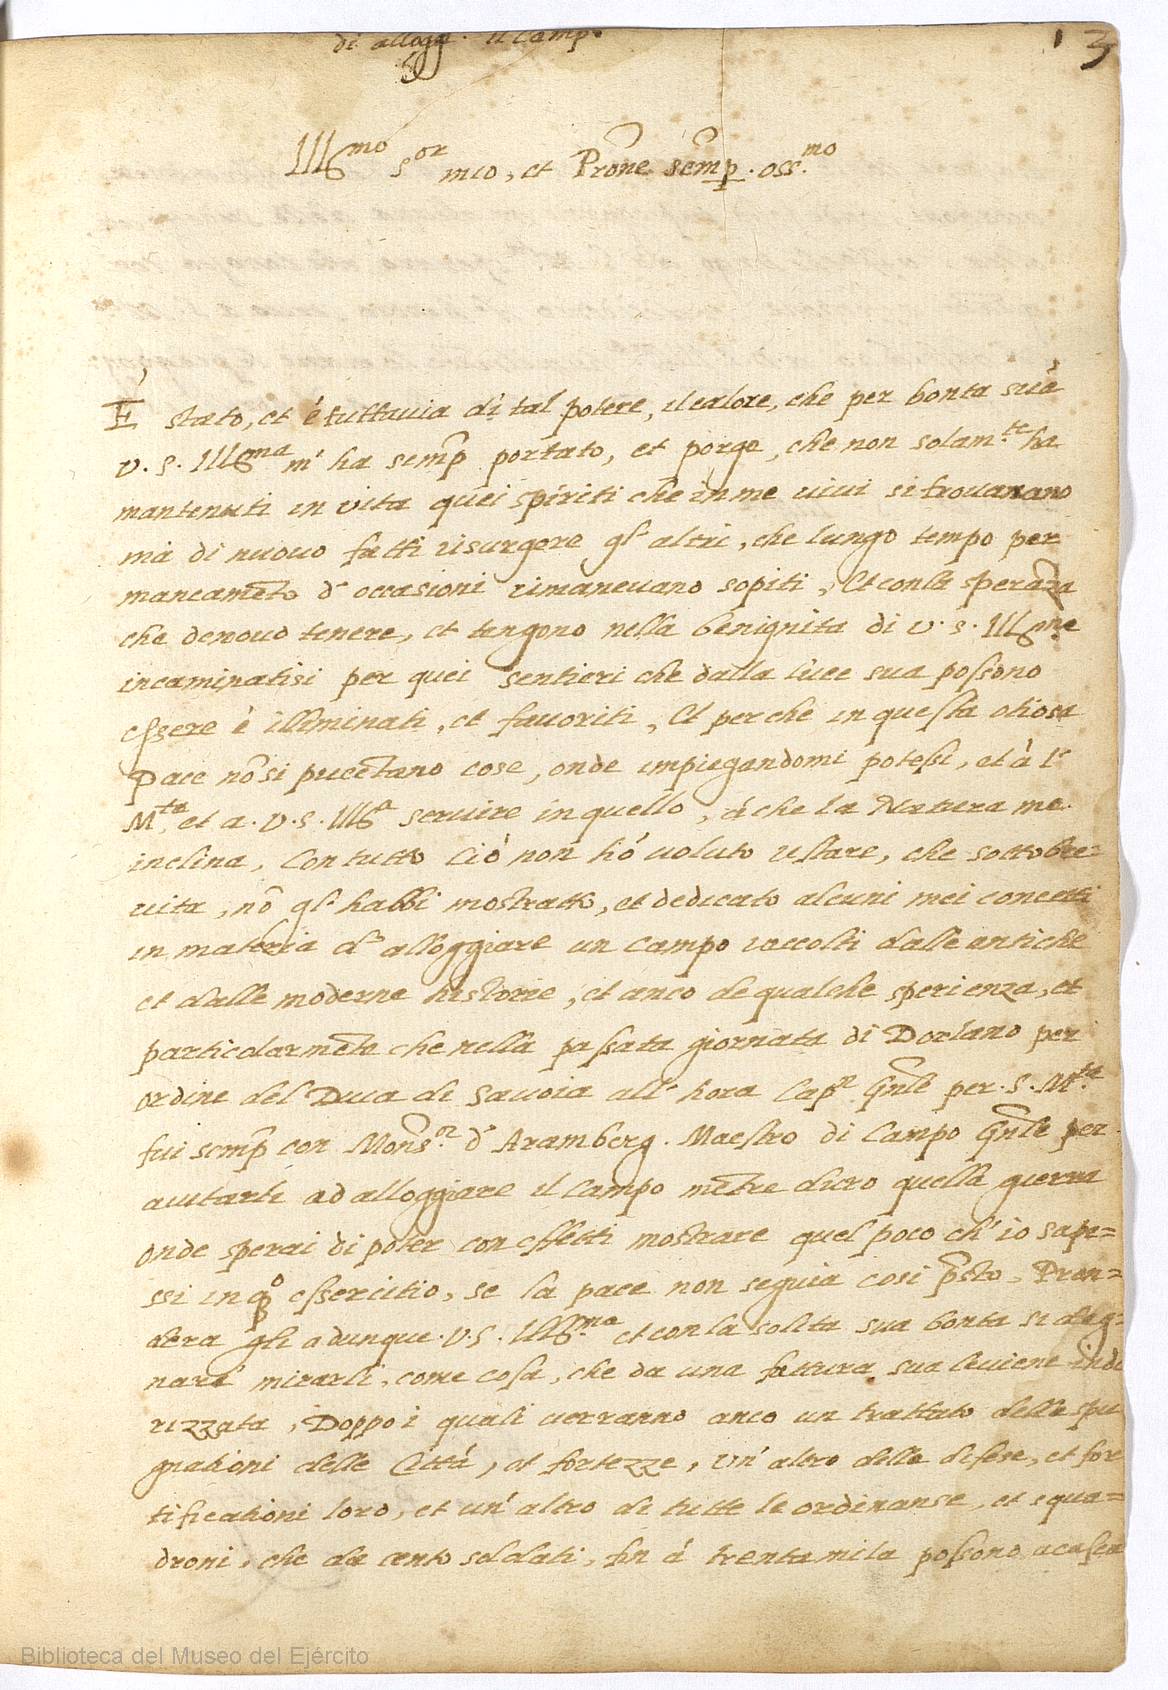 di allogg. il Camp.
13
Ill.mo S.or mio, et Prone semp. oss.mo
È stato, et é tuttauia di tal potere, il calore, che per bonta suà
V. S. Ill.ma m' ha semp portato, et porge, che non solam.te ha
mantenuti in vita quei spiriti che in me uiui si trouauano
mà di nuouo fatti risurgere gl' altri, che lungo tempo per
mancamēto d' occasioni rimaneuano sopiti, Et con la sperāza
che denouo tenere, et tengono nella benignita di V. S. Ill.me
incaminatisi per quei sentieri che dalla luce sua possono
essere è illiminati, et fauoriti, Et perche in questa otiosa
Pace nō si pucētano cose, onde impiegandomi potessi, et à l'
M.ta, et a. V. S. Ill.a seruire in quello, à che la Natura me.
inclina, Con tutto Ciò non hó uoluto restare, che sotto bre=
uita, nō gl' habbi mostratto, et dedicato alcuni mei concetti
in materia d' alloggiare un campo raccolti dalle antiche
et dalle moderne historie, et anco de qualche sperienza, et
particolarmēte che nella passata giornata di Dorlano per
ordine del Duca di Sauoia all' hora Cap.n Gn̄le per. S. M.ta
fui semp con Mons.or d' Aramberg. Maestro di Campo Gn̄le per
auitarli ad alloggiare il Campo mētre duro quella guerra
onde sperai di poter con effetti mostrare quel poco ch' io sape=
ssi in q.o essercitio, se la pace non seguia cosi p̄sto. Pren=
dera gli adunque. V. S. Ill.ma et con la solita sua bonta si deg=
nara' mirarli, come cosa, che da una fattura sua leuiene indi
rizzata, Doppo i quali uerranno anco un trattato delle spu
gnationi delle Città, et fortezze, Un' altro delle difese, et for
tificationi loro, et un' altro de tutte le ordinanse, et squa=
droni, che da cento soldati, fin á trenta mila possono acascar
Biblioteca del Museo del Ejército